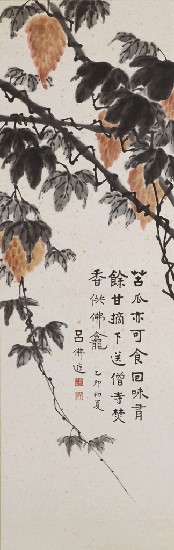 苦瓜亦可食回味有
餘甘摘下送僧寺焚
香供佛龕
乙卯初夏
呂佛庭